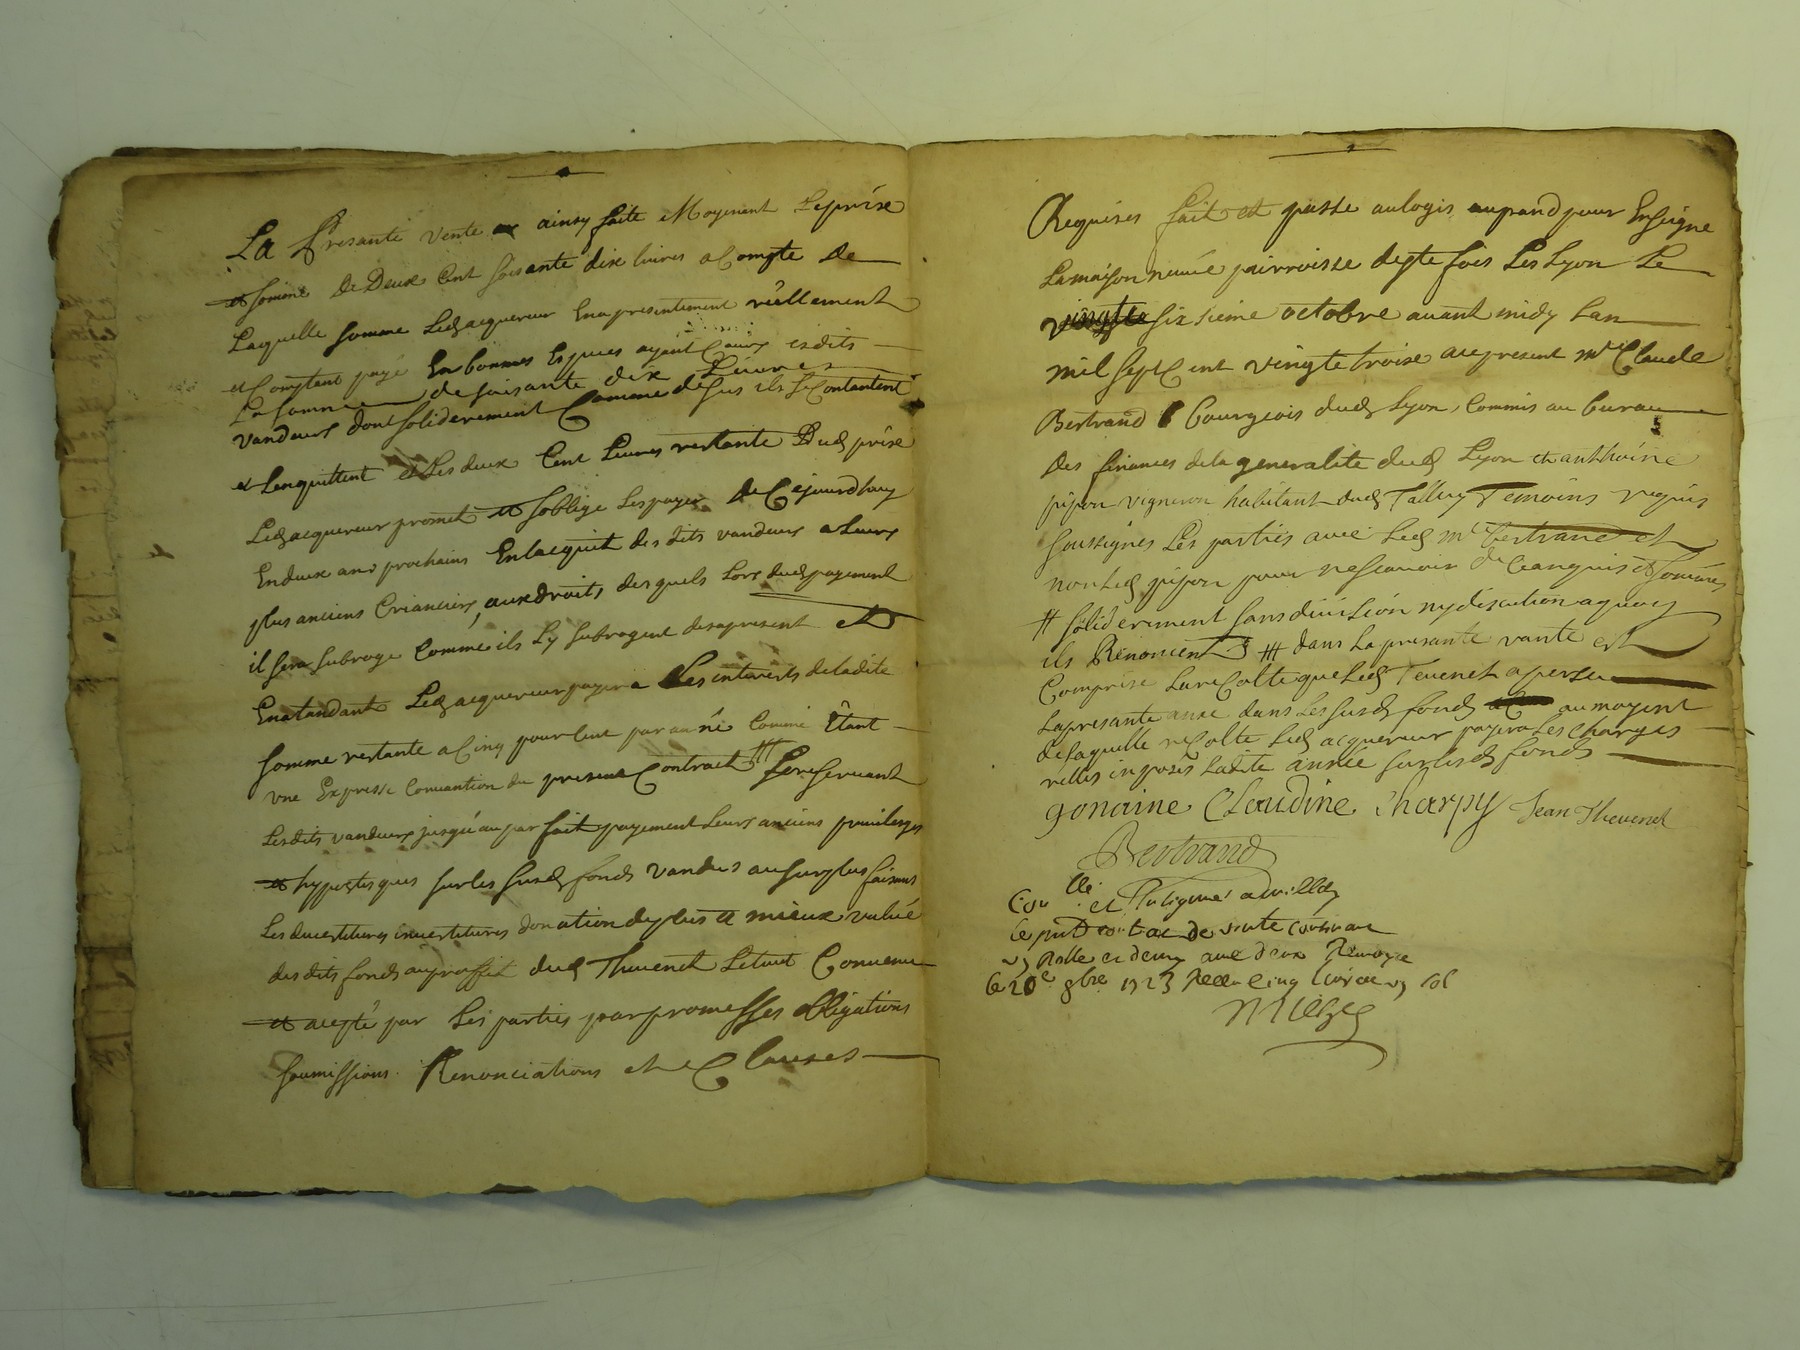 La Presante vente ainsy faite Moyenent Leprixe
et somme de Deux Cent soisante dix livres a Compte de
Laquelle somme Ledq acquereur En a presentement reellement
et Comptant payé En bonnes Especes ayant Cours esdits
La somme de soisante dix Livres
vandeurs dont soliderement Comme desus ils se Contantent
et Lenquittent et Les deux Cent Livres restante Dudq prixe
Ledq acquereur promet et soblige Les payer de Cejourdhuy
En deux ans prochains En lacquit des dits vandeurs a Leurs
plus anciens Crianciers, aux droits desquels Lors dudq payement
il sera subroge Comme ils Ly subrogent desapresent et
En atandant Ledq acquereur payera Les interests de ladite
somme restante a Cinq pour Cent par année Comme Etant
une Expresse Convantion du present Contract # Se reservant
Lesdits vandeurs jusqu'au parfait payement Leurs anciens privileges
et hypoteques sur les susdq fonds vandus au surplus faisant
Les devestitures investitures donation de plus et mieux value
des dits fonds au proffit dudq Thevenet Le tout Convenu
et acepté par Les parties par promesses obligations
soumissions Renonciations et Clauses
Requises fait et passe au logis ayant pour Enseigne
La maison neuve parroisse de Ste fois Les Lyon Le
vingte sixsieme octobre avant midy Lan
mil sept Cent vingte troise en present mr Claude
Bertrand Bourgeois dudq Lyon, Commis au bureau
Des finances de la generalite dudq Lyon et anthoine
pipon vigneron habitant dudq Talluy Temoins requis
soussignes Les parties avec Ledq mr Bertrand et
non Ledq pipon pour ne scavoir de Ce anquis et sommes
# soliderement sans division ny discution a quoy
ils Renoncent # dans La presante vante est
Comprise La recolte que Ledq Tevenet a persu
La presante anne dans Les susdq fonds au moyent
de laquelle recolte Ledq acquereur payera Les charges
reelles imposés Ladite année sur lesdq fonds
gonaine Claudine Charpy Jean Thevenet
Bertrand
Le pnt contrac de vante
Le 20e 9bre 1723 cinq livres sol